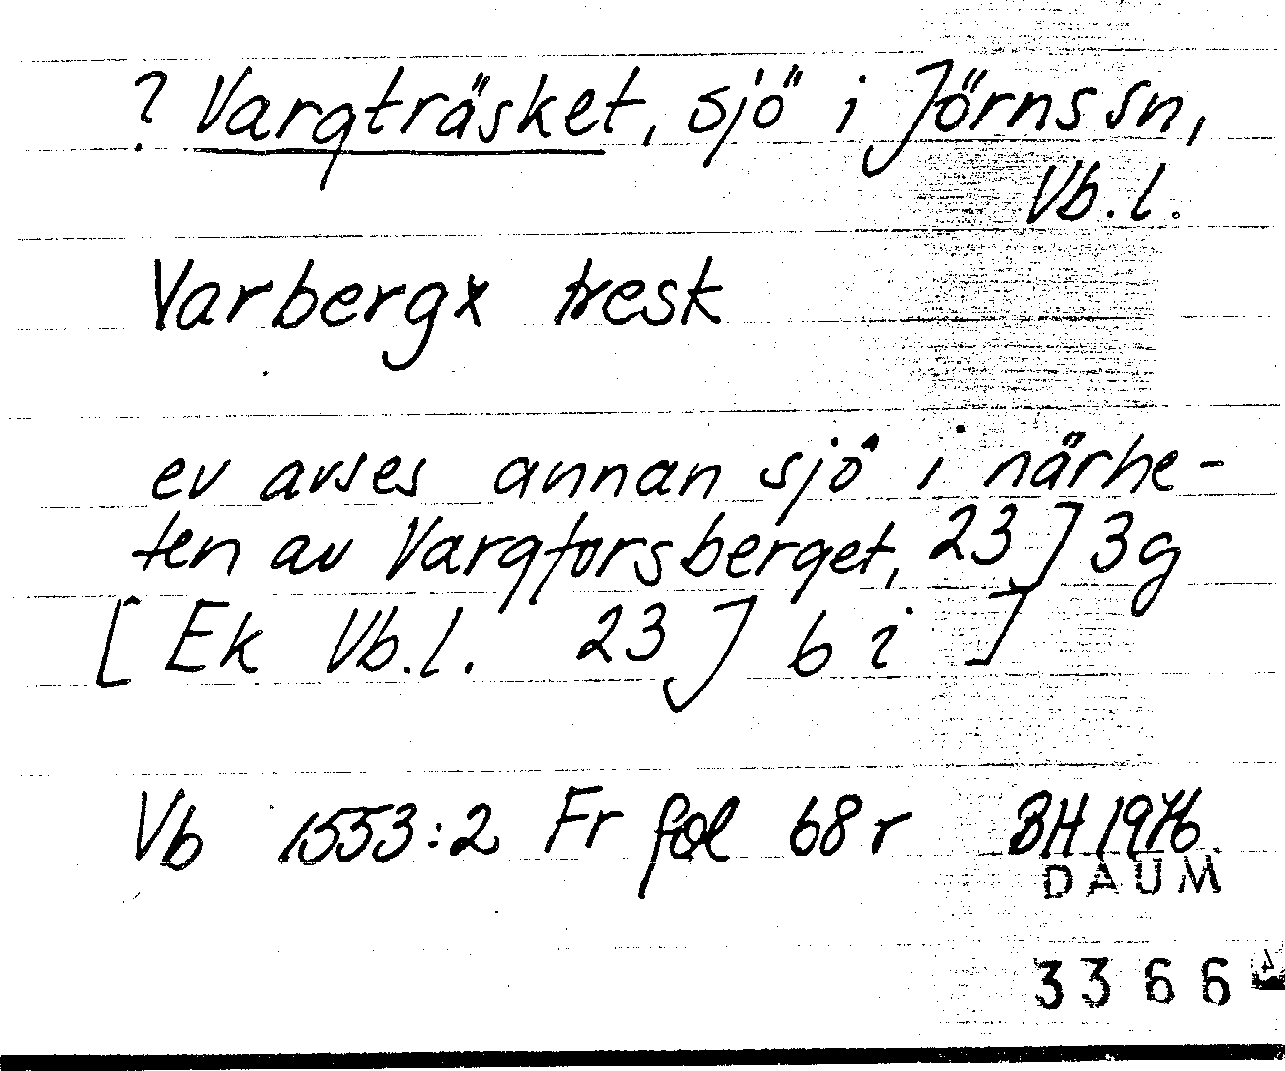 ? Vargträsket, sjö i Jörns sn,
Vb.l.
Varbergx tresk
ev avses annan sjö i närhe-
ten av Vargforsberget, 23 J 3g
[ Ek Vb.l. 23 J 6 i ]
Vb 1553:2 Fr fol 68 r BH 1976
DAUM
3366